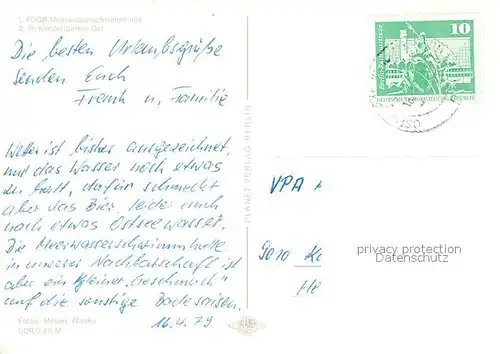 1. FDGB-Meerwasserschwimmhalle
2. Im Konzertgarten Ost
Die besten Urlaubsgrüße
senden Euch
Frank u. Familie
Wetter ist bisher ausgezeichnet,
nur das Wasser noch etwas
zu kalt, dafür schmeckt
aber das Bier, leider auch
noch etwas Ostseewasser.
Die Meerwasserschwimmhalle
in unserer Nachbarschaft ist
aber ein kleiner "Geschmack"
auf die sonstige Badesaison.
16.4.79
Fotos:
DDR 0,20 M
PLANET-VERLAG BERLIN
10
VPA
9010 K
He
privacy protection
Datenschutz